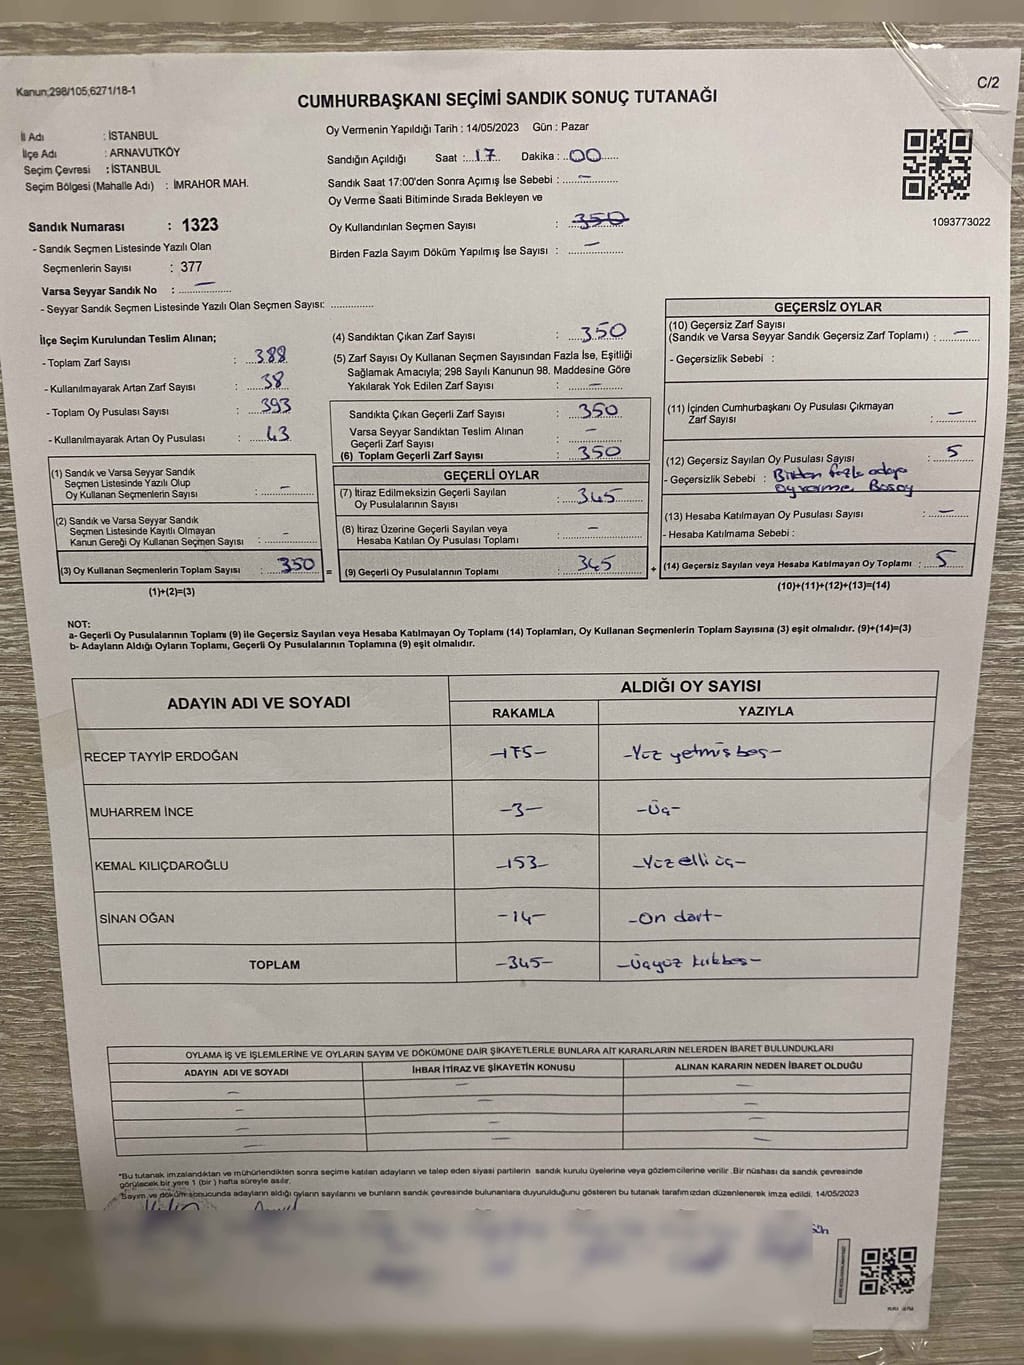 Kanun;298/105;6271/18-1
C/2
CUMHURBAŞKANI SEÇİMİ SANDIK SONUÇ TUTANAĞI
İl Adı : İSTANBUL
İlçe Adı : ARNAVUTKÖY
Seçim Çevresi : İSTANBUL
Seçim Bölgesi (Mahalle Adı) : İMRAHOR MAH.
Sandık Numarası : 1323
- Sandık Seçmen Listesinde Yazılı Olan
Seçmenlerin Sayısı : 377
Varsa Seyyar Sandık No : —
- Seyyar Sandık Seçmen Listesinde Yazılı Olan Seçmen Sayısı: ..............
Oy Vermenin Yapıldığı Tarih : 14/05/2023 Gün : Pazar
Sandığın Açıldığı Saat : 17 Dakika : 00
Sandık Saat 17:00'den Sonra Açımış İse Sebebi : —
Oy Verme Saati Bitiminde Sırada Bekleyen ve
Oy Kullandırılan Seçmen Sayısı : 350
Birden Fazla Sayım Döküm Yapılmış İse Sayısı : —
1093773022
İlçe Seçim Kurulundan Teslim Alınan;
- Toplam Zarf Sayısı : 388
- Kullanılmayarak Artan Zarf Sayısı : 38
- Toplam Oy Pusulası Sayısı : 393
- Kullanılmayarak Artan Oy Pusulası : 43
(1) Sandık ve Varsa Seyyar Sandık
Seçmen Listesinde Yazılı Olup
Oy Kullanan Seçmenlerin Sayısı : -
(2) Sandık ve Varsa Seyyar Sandık
Seçmen Listesinde Kayıtlı Olmayan
Kanun Gereği Oy Kullanan Seçmen Sayısı : -
(3) Oy Kullanan Seçmenlerin Toplam Sayısı : 350 =
(1)+(2)=(3)
(4) Sandıktan Çıkan Zarf Sayısı : 350
(5) Zarf Sayısı Oy Kullanan Seçmen Sayısından Fazla İse, Eşitliği
Sağlamak Amacıyla; 298 Sayılı Kanunun 98. Maddesine Göre
Yakılarak Yok Edilen Zarf Sayısı : —
Sandıkta Çıkan Geçerli Zarf Sayısı : 350
Varsa Seyyar Sandıktan Teslim Alınan
Geçerli Zarf Sayısı : -
(6) Toplam Geçerli Zarf Sayısı : 350
GEÇERLİ OYLAR
(7) İtiraz Edilmeksizin Geçerli Sayılan
Oy Pusulalarının Sayısı : 345
(8) İtiraz Üzerine Geçerli Sayılan veya
Hesaba Katılan Oy Pusulası Toplamı : —
(9) Geçerli Oy Pusulalarının Toplamı : 345 +
GEÇERSİZ OYLAR
(10) Geçersiz Zarf Sayısı
(Sandık ve Varsa Seyyar Sandık Geçersiz Zarf Toplamı) : —
- Geçersizlik Sebebi :
(11) İçinden Cumhurbaşkanı Oy Pusulası Çıkmayan
Zarf Sayısı : —
(12) Geçersiz Sayılan Oy Pusulası Sayısı : 5
- Geçersizlik Sebebi : Birden fazla adaya
(13) Hesaba Katılmayan Oy Pusulası Sayısı : —
- Hesaba Katılmama Sebebi :
(14) Geçersiz Sayılan veya Hesaba Katılmayan Oy Toplamı : 5
(10)+(11)+(12)+(13)=(14)
NOT:
a- Geçerli Oy Pusulalarının Toplamı (9) ile Geçersiz Sayılan veya Hesaba Katılmayan Oy Toplamı (14) Toplamları, Oy Kullanan Seçmenlerin Toplam Sayısına (3) eşit olmalıdır. (9)+(14)=(3)
b- Adayların Aldığı Oyların Toplamı, Geçerli Oy Pusulalarının Toplamına (9) eşit olmalıdır.
ADAYIN ADI VE SOYADI ALDIĞI OY SAYISI
RAKAMLA YAZIYLA
RECEP TAYYİP ERDOĞAN -175- -Yüz yetmiş beş-
MUHARREM İNCE -3- -Üç-
KEMAL KILIÇDAROĞLU -153- -Yüz elli üç-
SİNAN OĞAN -14- -On dört-
TOPLAM -345- -Üçyüz kırkbeş-
OYLAMA İŞ VE İŞLEMLERİNE VE OYLARIN SAYIM VE DÖKÜMÜNE DAİR ŞİKAYETLERLE BUNLARA AİT KARARLARIN NELERDEN İBARET BULUNDUKLARI
ADAYIN ADI VE SOYADI İHBAR İTİRAZ VE ŞİKAYETİN KONUSU ALINAN KARARIN NEDEN İBARET OLDUĞU
*Bu tutanak imzalandıktan ve mühürlendikten sonra seçime katılan adayların ve talep eden siyasi partilerin sandık kurulu üyelerine veya gözlemcilerine verilir .Bir nüshası da sandık çevresinde
görülecek bir yere 1 (bir ) hafta süreyle asılır.
*Sayım ve döküm sonucunda adayların aldığı oyların sayılarını ve bunların sandık çevresinde bulunanlara duyurulduğunu gösteren bu tutanak tarafımızdan düzenlenerek imza edildi. 14/05/2023